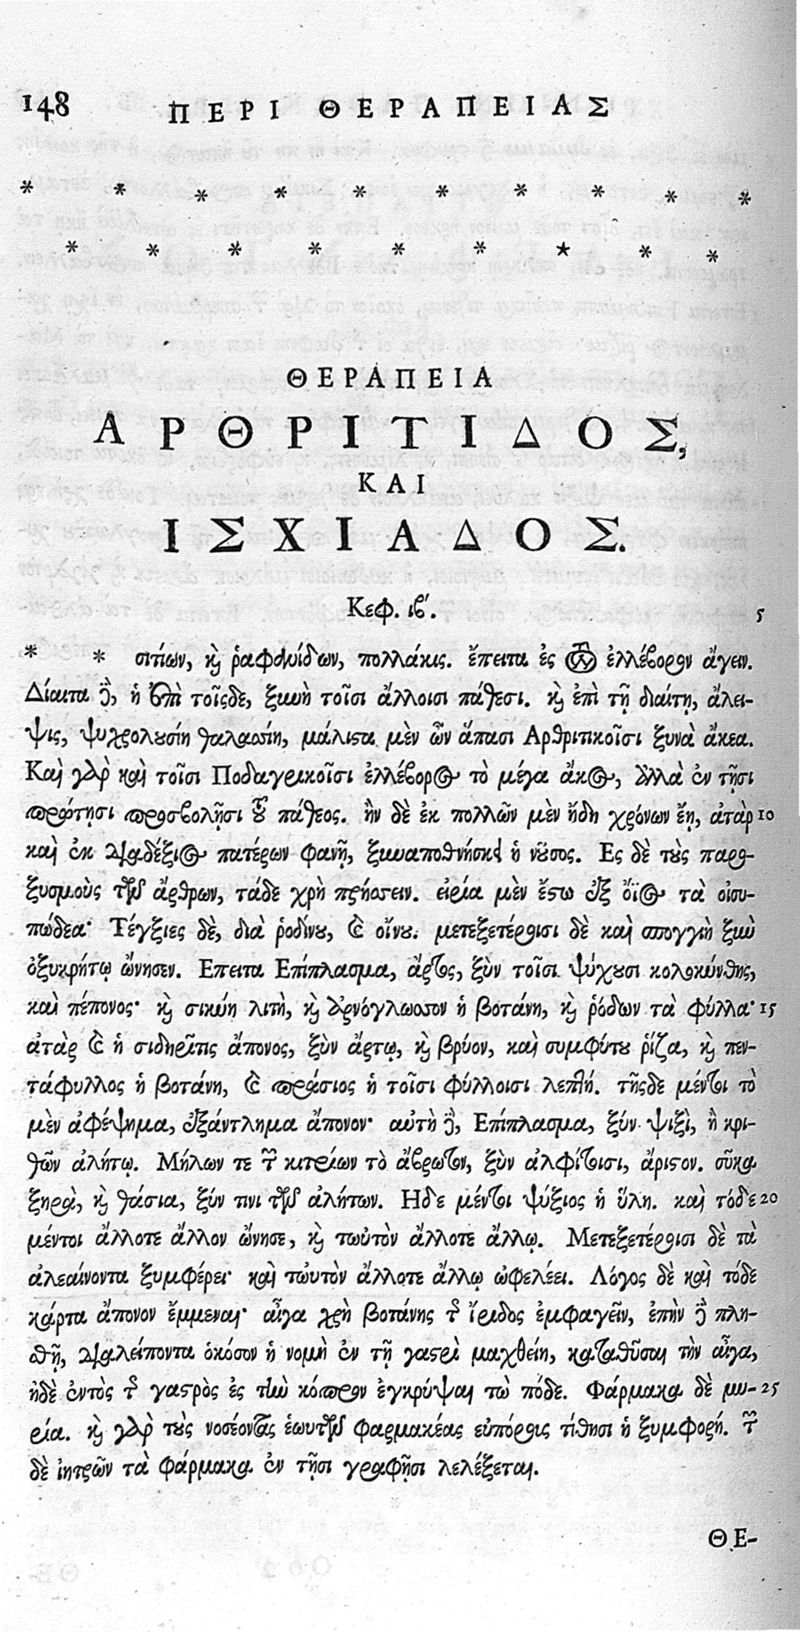 148 ΠΕΡΙ ΘΕΡΑΠΕΙΑΣ
* * * * * * * * * *
* * * * * * * * *
ΘΕΡΑΠΕΙΑ
ΑΡΘΡΙΤΙΔΟΣ,
ΚΑΙ
ΙΣΧΙΑΔΟΣ.
Κεφ. ιβ΄. 5
* * σιτίων, καὶ ῥαφανίδων, πολλάκις. ἔπειτα ἐς τὸν ἐλλέβορον ἄγειν.
Δίαιτα δὲ, ἡ ἐπὶ τοῖςδε, ξυνὴ τοῖσι ἄλλοισι πάθεσι. καὶ ἐπὶ τῇ διαίτῃ, ἄλει-
ψις, ψυχρολουσίη θαλασσίη, μάλιστα μὲν ὦν ἅπασι Αρθριτικοῖσι ξυνὰ ἄκεα.
Καὶ γὰρ καὶ τοῖσι Ποδαγρικοῖσι ἐλλέβορος τὸ μέγα ἄκος, ἀλλὰ ἐν τῇσι
πρώτῃσι προσβολῇσι τοῦ πάθεος. ἢν δὲ ἐκ πολλῶν μὲν ἤδη χρόνων ἔῃ, ἀτὰρ 10
καὶ ἐκ διαδέξιος πατέρων φανῇ, ξυναποθνήσκει ἡ νοῦσος. Ες δὲ τοὺς παρο-
ξυσμοὺς τῶν ἄρθρων, τάδε χρὴ πρήσσειν. εἰρία μὲν ἔστω ἐξ ὄϊος τὰ οἰσυ-
πώδεα· Τέγξιες δὲ, διὰ ῥοδίνου, καὶ οἴνου. μετεξετέροισι δὲ καὶ σπογγιὴ ξυὺ
ὀξυκρήτῳ ὤνησεν. Επειτα Επίπλασμα, ἄρτος, ξὺν τοῖσι ψύχουσι κολοκύνθης,
καὶ πέπονος· καὶ σικύη λιτὴ, καὶ ἀρνόγλωσσον ἡ βοτάνη, καὶ ῥόδων τὰ φύλλα· 15
ἀτὰρ καὶ ἡ σιδηρῖτις ἄπονος, ξὺν ἄρτῳ, καὶ βρύον, καὶ συμφύτου ῥίζα, καὶ πεν-
τάφυλλος ἡ βοτάνη, καὶ πράσιος ἡ τοῖσι φύλλοισι λεπτή. τῆςδε μέντοι τὸ
μὲν ἀφέψημα, ἐξάντλημα ἄπονον· αὐτὴ δὲ, Επίπλασμα, ξύν ψιξὶ, ἢ κρι-
θῶν ἀλήτῳ. Μήλων τε τῶν κιτρίων τὸ ἄβρωτον, ξὺν ἀλφίτοισι, ἄριστον. σῦκα
ξηρὰ, καὶ θάσια, ξύν τινι τῶν ἀλήτων. Ηδε μέντοι ψύξιος ἡ ὕλη. καὶ τόδε 20
μέντοι ἄλλοτε ἄλλον ὤνησε, καὶ τωὐτὸν ἄλλοτε ἄλλῳ. Μετεξετέροισι δὲ τὰ
ἀλεαίνοντα ξυμφέρει· καὶ τὠυτὸν ἄλλοτε ἄλλῳ ὠφελέει. Λόγος δὲ καὶ τόδε
κάρτα ἄπονον ἔμμεναι· αἶγα χρὴ βοτάνης τῆς ἴριδος ἐμφαγεῖν, ἐπὴν δὲ πλη-
σθῇ, διαλείποντα ὁκόσον ἡ νομὴ ἐν τῇ γαστρὶ μαχθείη, καταθῦσαι τὴν αἶγα,
ἠδὲ ἐντὸς τῆς γαστρὸς ἐς τὴν κόπρον ἐγκρύψαι τὼ πόδε. Φάρμακα δὲ μυ- 25
ρία. καὶ γὰρ τοὺς νοσέοντας ἑωυτῶν φαρμακέας εὐπόροις τίθησι ἡ ξυμφορή. τῶν
δὲ ἰητρῶν τὰ φάρμακα ἐν τῇσι γραφῇσι λελέξεται.
ΘΕ-